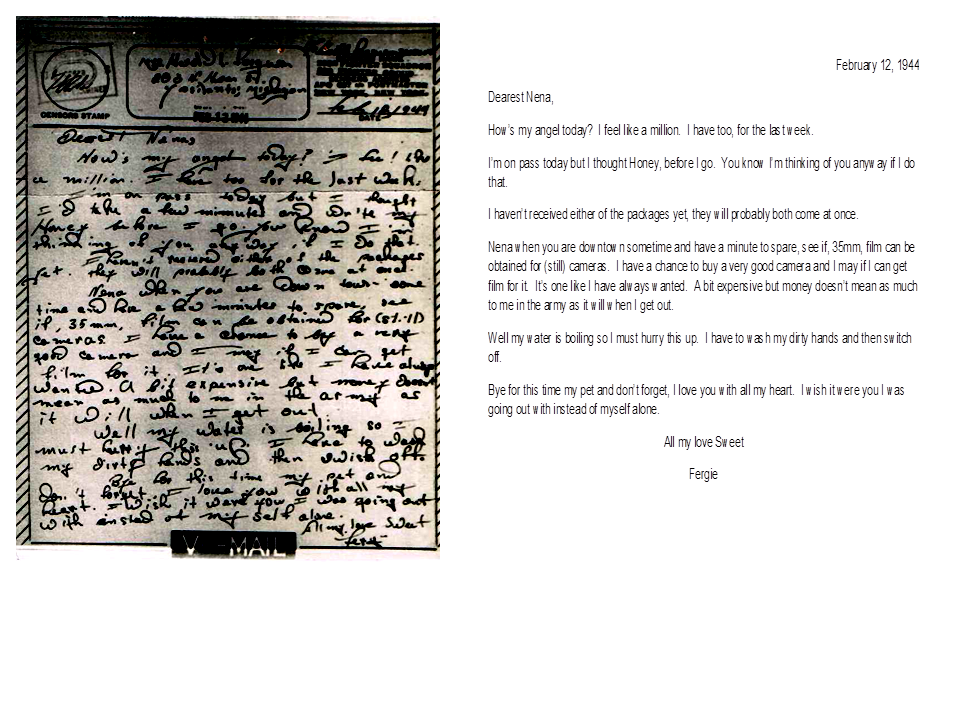 CENSORS STAMP
Ypsilanti, Michigan
DATE
Dearest Nena,
How's my angel today? I feel like
a million. I have too for the last week.
I'm on pass today but I thought
I'd take a few minutes and write my
Honey before I go. You know I'm
thinking of you anyway if I do that.
I haven't received either of the packages
yet. they will probably both come at once.
Nena when you are down town some
time and have a few minutes to spare, see
if, 35mm, film can be obtained for (still)
cameras. I have a chance to buy a very
good camera and I may if I can get
film for it. It's one like I have always
wanted. A bit expensive but money doesn't
mean as much to me in the army as
it will when I get out.
Well my water is boiling so I
must hurry this up. I have to wash
my dirty hands and then swish off.
Bye for this time my pet and
don't forget. I love you with all my
heart. I wish it were you I was going out
with insted of my self alone.
All my love Sweet
Fergie
V -MAIL
February 12, 1944
Dearest Nena,
How's my angel today? I feel like a million. I have too, for the last week.
I'm on pass today but I thought Honey, before I go. You know I'm thinking of you anyway if I do
that.
I haven't received either of the packages yet, they will probably both come at once.
Nena when you are downtown sometime and have a minute to spare, see if, 35mm, film can be
obtained for (still) cameras. I have a chance to buy a very good camera and I may if I can get
film for it. It's one like I have always wanted. A bit expensive but money doesn't mean as much
to me in the army as it will when I get out.
Well my water is boiling so I must hurry this up. I have to wash my dirty hands and then switch
off.
Bye for this time my pet and don't forget, I love you with all my heart. I wish it were you I was
going out with instead of myself alone.
All my love Sweet
Fergie